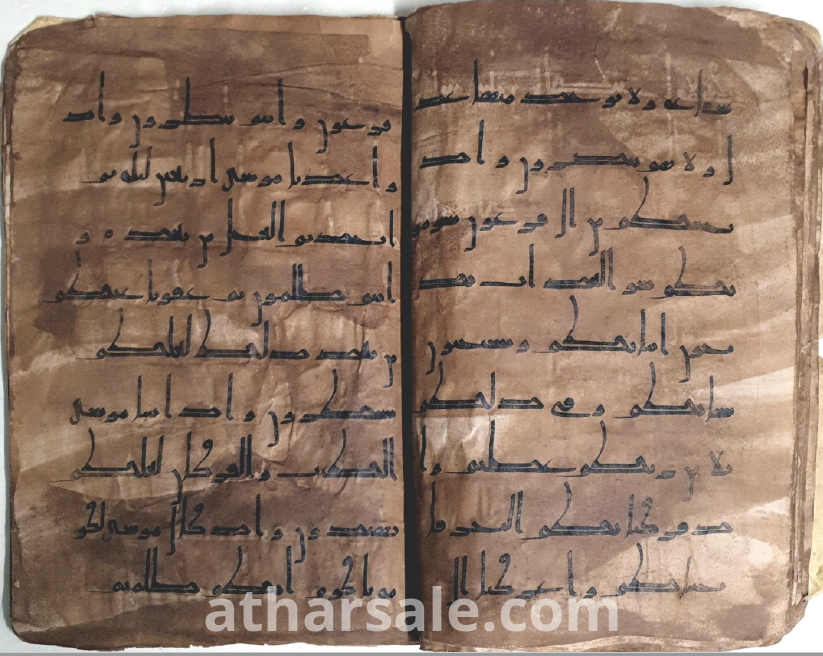 شفاعة ولا يؤخذ منها عد
ل ولا هم ينصرون واذ
نجينكم من ال فرعون يسومو
نكم سو العذاب يذ
بحون ابناكم ويستحيون
نساكم وفي ذلكم
بلا من ربكم عظيم وا
ذ فرقنا بكم البحر فا
نجينكم واغرقنا ال
فرعون وانتم تنظرون واذ
واعدنا موسى اربعين ليلة ثم
اتخذتم العجل من بعده و
انتم ظلمون ثم عفونا عنكم
من بعد ذلك لعلكم
تشكرون واذ اتينا موسى
الكتب والفرقان لعلكم
تهتدون واذ قال موسى لقو
مه ياقوم انكم ظلمتم
atharsale.com